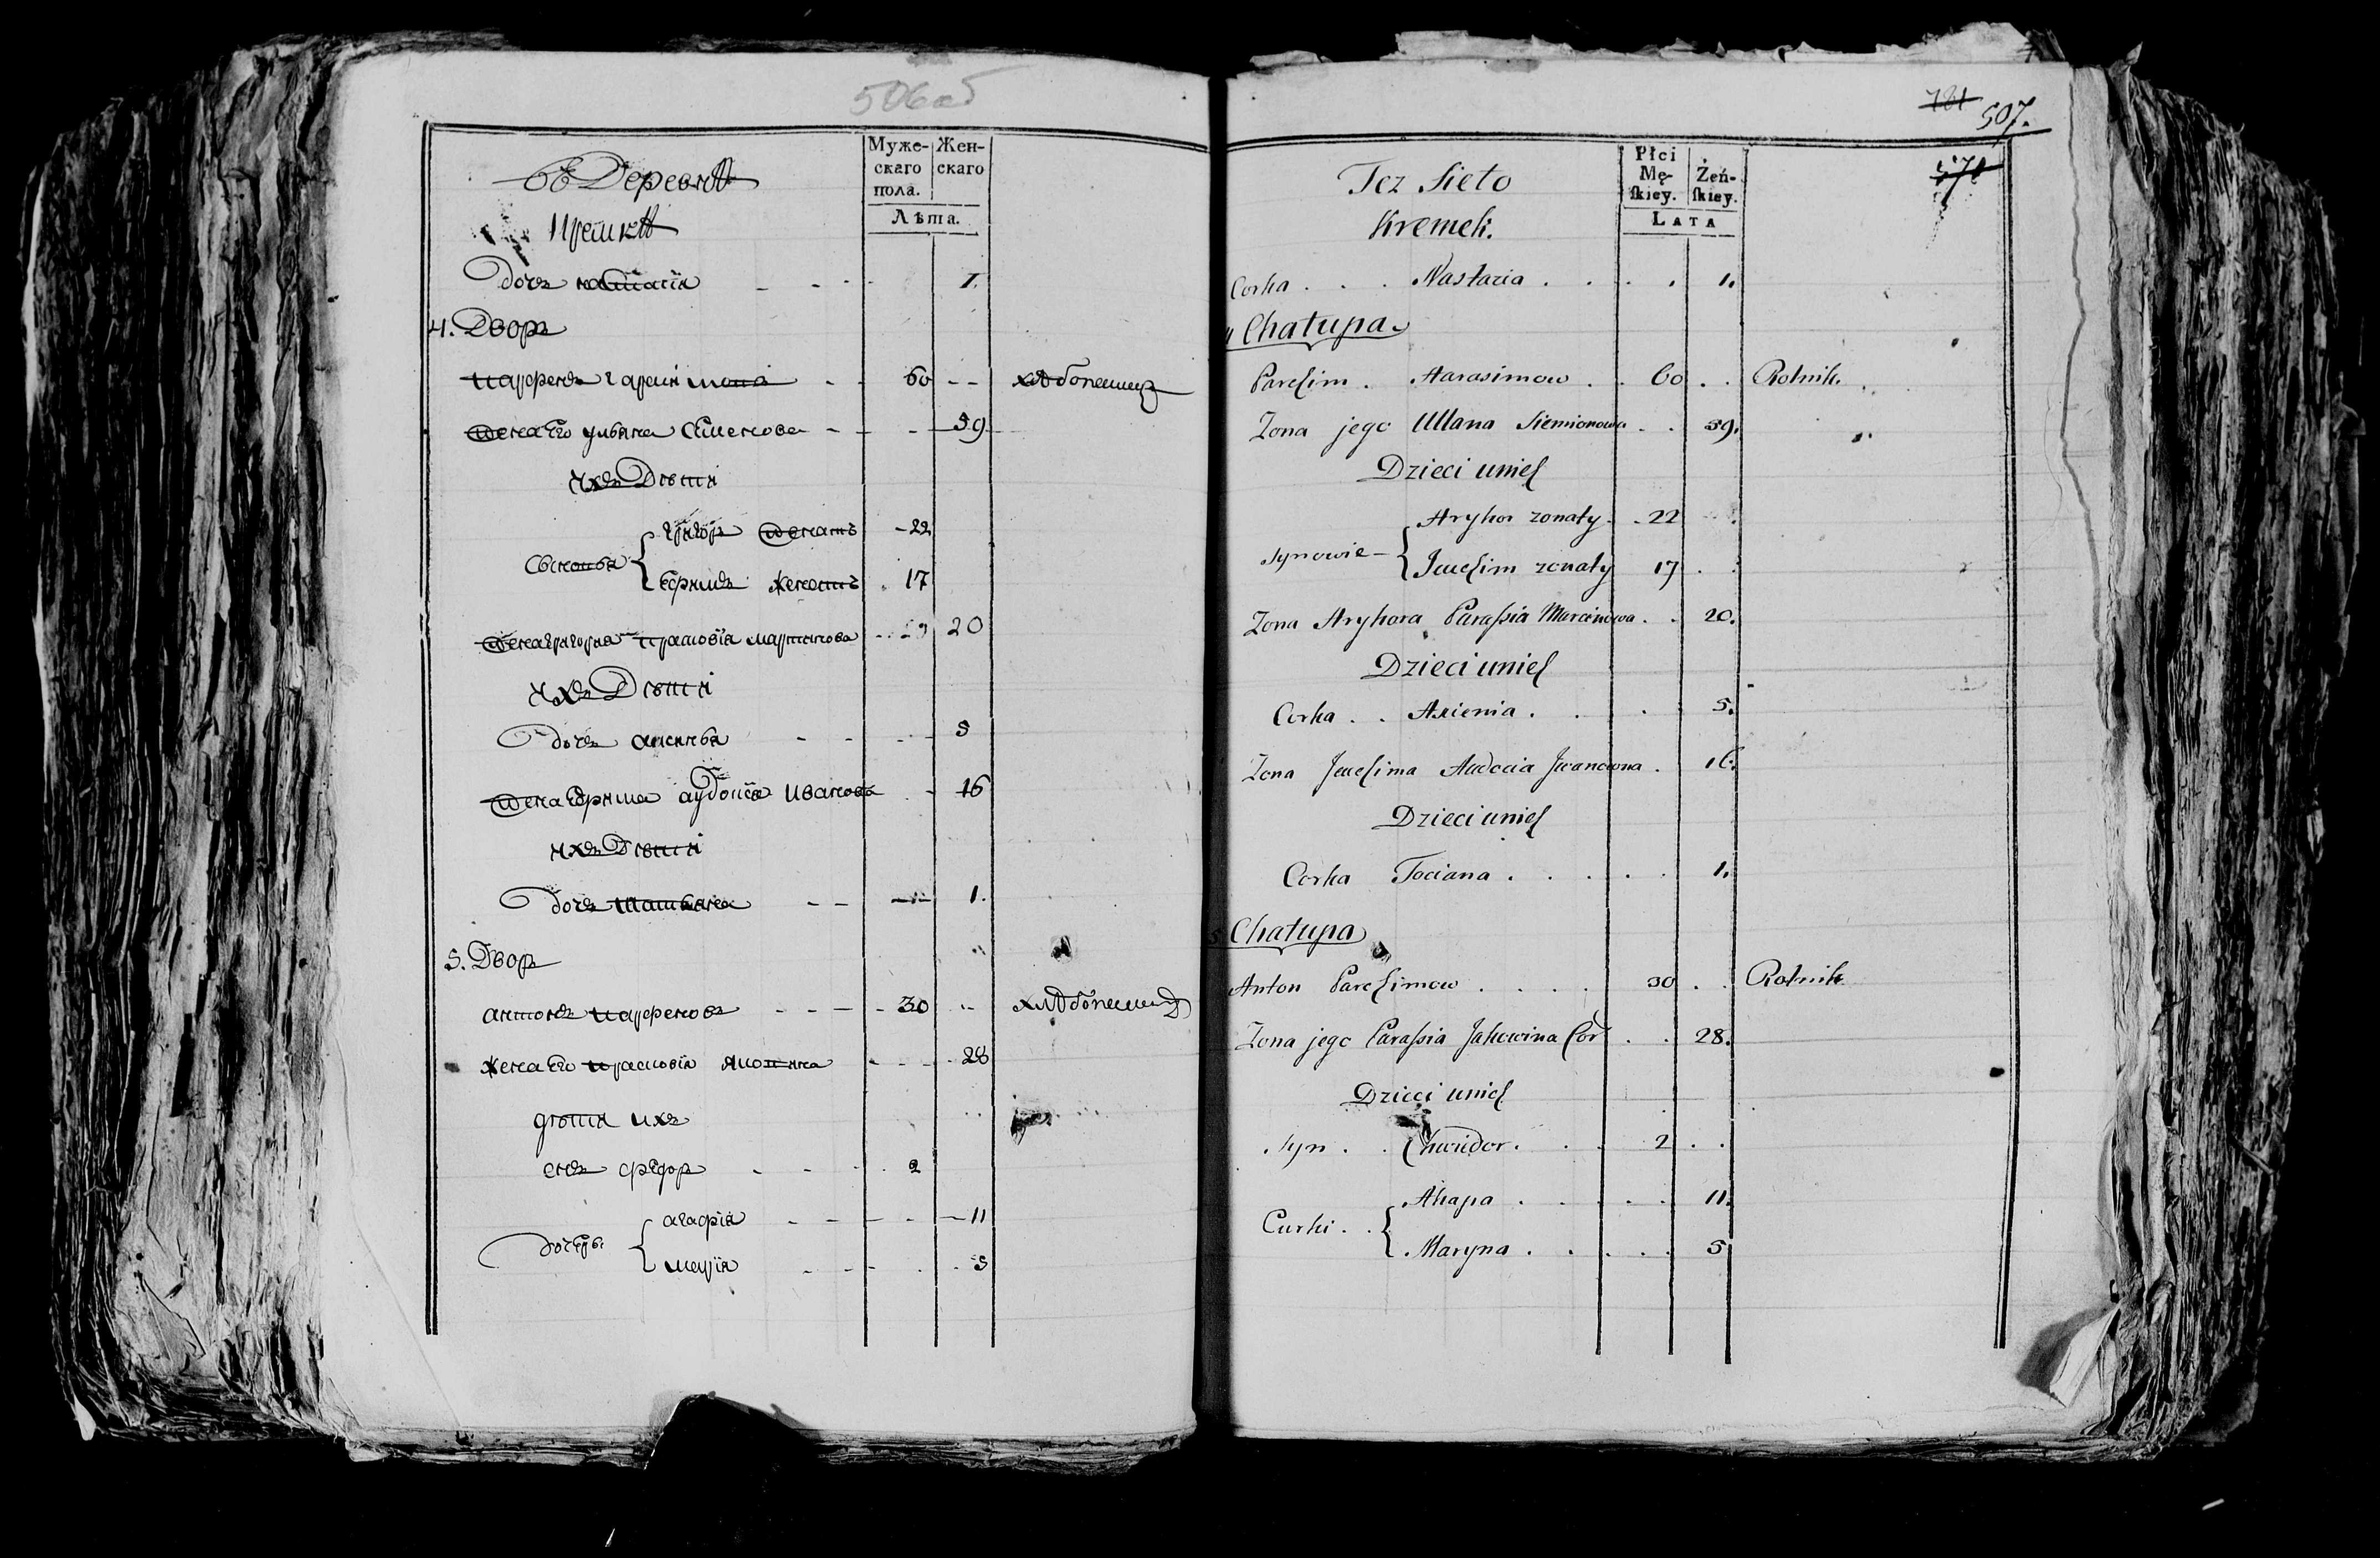 506об
въ Деревнѣ
Муже-
скаго
пола.
Жен-
скаго
Лѣта.
дочь настасiя 1.
4. Дворъ
60 хлѣбопашецъ
жена Его ульяна Семенова 59
ихъ Дѣти
Сыновья { григорь женатъ 22
Ефимъ женатъ 17
жена григорья прасковiя мартинова 20
ихъ Дѣти
дочь аксинья 5
жена Ефима аудотiя Иванова 16
ихъ Дѣти
дочь татьяна 1.
5. Дворъ
антонъ парфеновъ 30 хлѣбопашецъ
жена Его прасковiя 28
дѣти ихъ
снъ федоръ 2
дочери { агафiя 11
марiя 5
781
507.
571
Tez Sieło
Kremek.
Płci
Mę-
skiey.
Żeń-
skiey.
LATA
Corka . . . Nastazia . . . . 1.
4 Chałupa
Parchim . Harasimow . . 60 . . Rolnik.
Zona jego Ullana Siemionowa . . 59.
Dzieci unich
Synowie { Hryhor zonaty . . 22
Jauchim zonaty 17 . .
Zona Hryhora Paraſsia Marcinowa . . 20.
Dzieci unich
Corka . . Axienia . . . 5.
Zona Jauchima Audocia Jwanowna . 16.
Dzieci unich
Corka Tociana . . . . . 1.
5. Chałupa
Anton Parchimow . . . . 30 . . Rolnik
Zona jego Paraſsia Jakowina Cor . . 28.
Dzieci unich
Syn . . Chwiedor . . . 2 . .
Curki . . { Ahapa . . . . . 11.
Maryna . . . . . 5